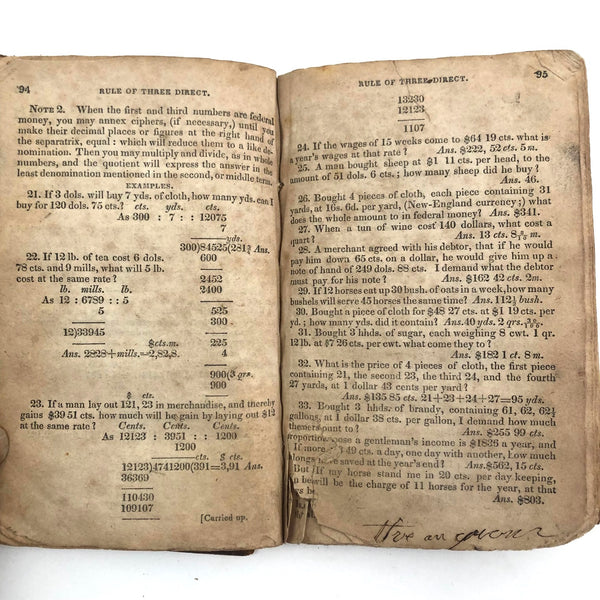 94
RULE OF THREE DIRECT.
NOTE 2. When the first and third numbers are federal
money, you may annex ciphers, (if necessary,) until you
make their decimal places or figures at the right hand of
the separatrix, equal: which will reduce them to a like de-
nomination. Then you may multiply and divide, as in whole
numbers, and the quotient will express the answer in the
least denomination mentioned in the second, or middle term.
EXAMPLES.
21. If 3 dols. will buy 7 yds. of cloth, how many yds. can I
buy for 120 dols. 75 cts.? cts. yds. cts.
As 300 : 7 : : 12075
7
yds.
300)84525(281¾ Ans.
22. If 12 lb. of tea cost 6 dols. 600
78 cts. and 9 mills, what will 5 lb.
cost at the same rate? 2452
lb. mills. lb. 2400
As 12 : 6789 : : 5
5 525
300
12)33945
$cts.m. 225
Ans. 2828+mills.=2,82,8. 4
900(3 qrs.
900
$ cts.
23. If a man lay out 121, 23 in merchandise, and thereby
gains $39 51 cts. how much will he gain by laying out $12
at the same rate? Cents. Cents. Cents.
As 12123 : 3951 : : 1200
1200
cts. $ cts.
12123)4741200(391=3,91 Ans.
36369
110430
109107
[Carried up.
RULE OF THREE DIRECT.
95
13230
12123
1107
24. If the wages of 15 weeks come to $64 19 cts. what is
a year's wages at that rate? Ans. $222, 52 cts. 5 m.
25. A man bought sheep at $1 11 cts. per head, to the
amount of 51 dols. 6 cts.; how many sheep did he buy?
Ans. 46.
26. Bought 4 pieces of cloth, each piece containing 31
yards, at 16s. 6d. per yard, (New-England currency;) what
does the whole amount to in federal money? Ans. $341.
27. When a tun of wine cost 140 dollars, what cost a
quart? Ans. 13 cts. 8 m.
28. A merchant agreed with his debtor, that if he would
pay him down 65 cts. on a dollar, he would give him up a
note of hand of 249 dols. 88 cts. I demand what the debtor
must pay for his note? Ans. $162 42 cts. 2m.
29. If 12 horses eat up 30 bush. of oats in a week, how many
bushels will serve 45 horses the same time? Ans. 112½ bush.
30. Bought a piece of cloth for $48 27 cts. at $1 19 cts. per
yd.; how many yds. did it contain? Ans. 40 yds. 2 qrs.
31. Bought 3 hhds. of sugar, each weighing 8 cwt. 1 qr.
12 lb. at $7 26 cts. per cwt. what come they to?
Ans. $182 1 ct. 8 m.
32. What is the price of 4 pieces of cloth, the first piece
containing 21, the second 23, the third 24, and the fourth
27 yards, at 1 dollar 43 cents per yard?
Ans. $135 85 cts. 21+23+24+27=95 yds.
33. Bought 3 hhds. of brandy, containing 61, 62, 62¼
gallons, at 1 dollar 38 cts. per gallon, I demand how much
they amount to? Ans. $255 99 cts.
pose a gentleman's income is $1836 a year, and
49 cts. a day, one day with another, how much
saved at the year's end? Ans. $562, 15 cts.
my horse stand me in 20 cts. per day keeping,
be the charge of 11 horses for the year, at that
Ans. $803.
proportion
If more
alongs
But If